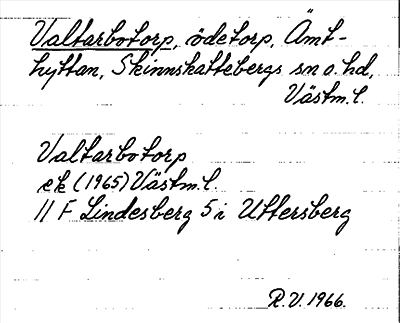 Valtarbotorp, ödetorp, Ämt-
hyttan, Skinnskattebergs sn o. hd,
Västm. l.
Valtarbotorp
ek (1965) Västm. l.
11 F Lindesberg 5 i Uttersberg
R.V. 1966.